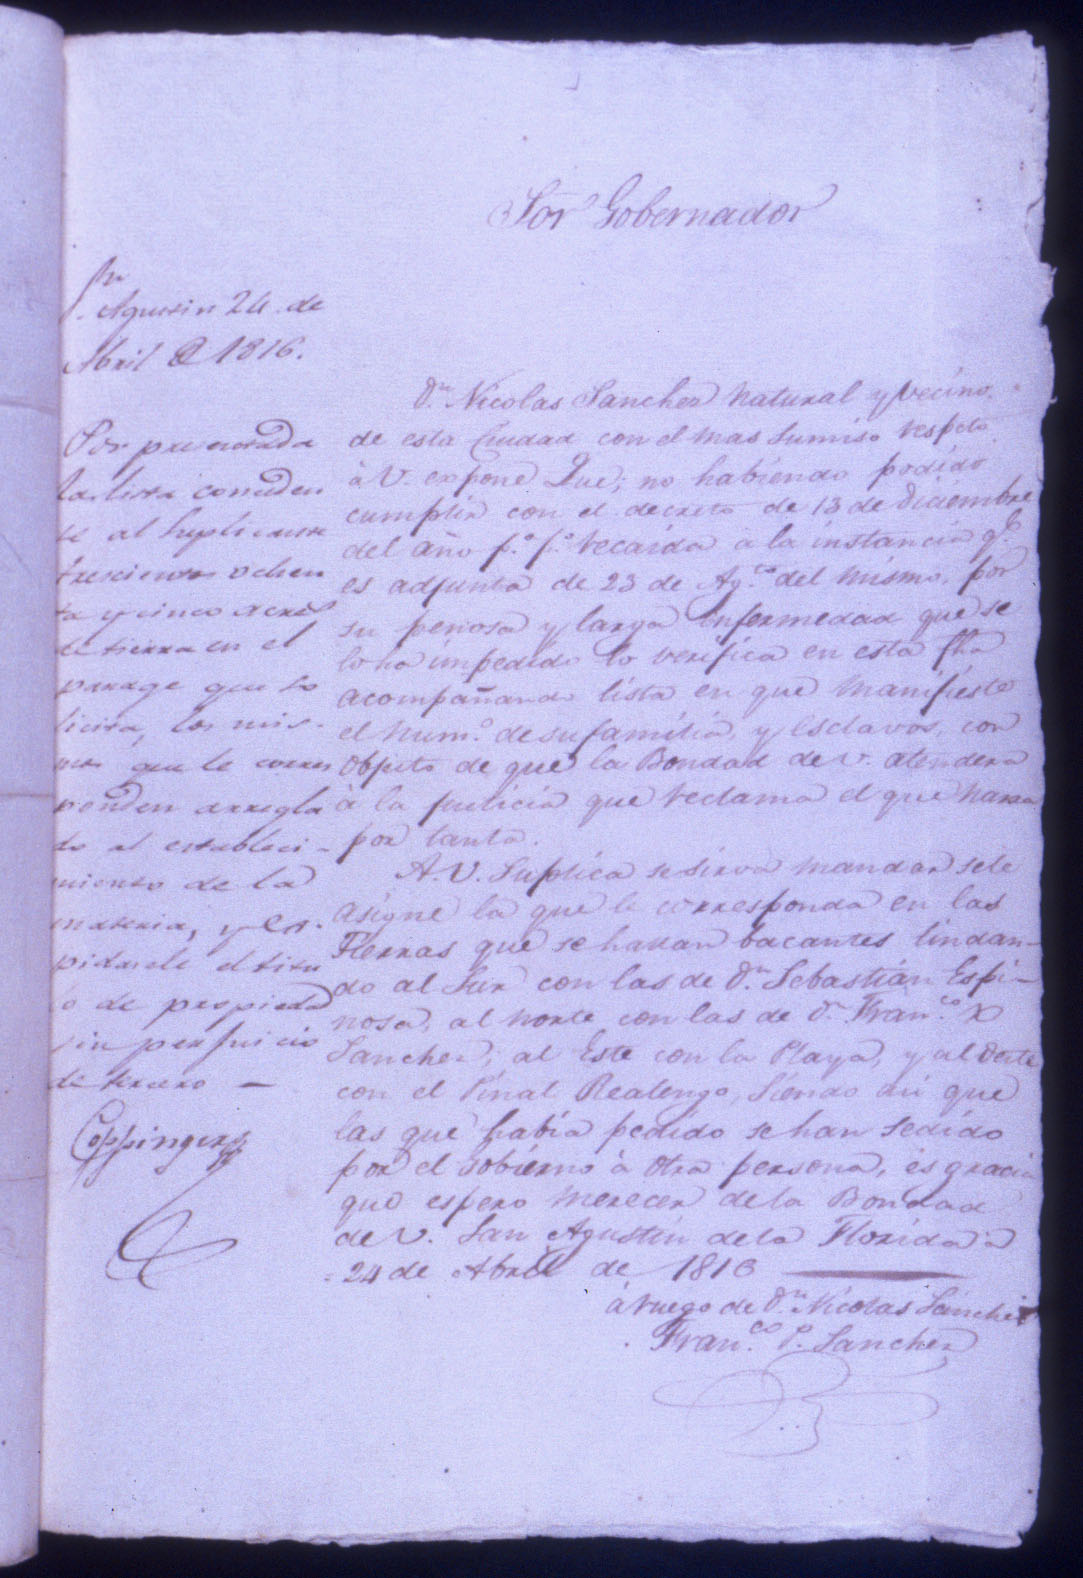 Sor. Gobernador
Sn.
Agustin 24 de
Abril de 1816.
Por presentada
la lista conceden
se al suplicante
trescientos ochen
ta y cinco acres
de tierra en el
parage que so
licita, los mis-
mos que le corres
ponden arregla
do al estableci-
miento de la
materia, y es-
pidasele el titu
lo de propiedad
sin perjuicio
de tercero —
Coppinger
Dn. Nicolas Sanchez natural y vecino
de esta Ciudad con el mas sumiso respeto
à V. expone Que; no habiendo podido
cumplir con el decreto de 13 de diciembre
del año p.o p.o recaida a la instancia q.e
es adjunta de 23 de Ag.to del mismo, por
su penosa y larga enfermedad que se
lo ha impedido lo verifica en esta fha
acompañando lista en que manifieste
el num.o de su familia, y esclavos, con
objeto de que la Bondad de V. atendera
à la justicia que reclama el que narra
por tanto.
A. V. Suplica se sirva mandar se le
asigne la que le corresponda en las
Tierras que se hallan bacantes lindan-
do al Sur con las de Dn. Sebastián Espi-
nosa, al norte con las de Dn. Fran.co X
Sanchez; al Este con la Playa, y al Oeste
con el Pinal Realengo, siendo asi que
las que había pedido se han sedido
por el gobierno à otra persona, es gracia
que espero merecer de la Bondad
de V. San Agustín de la Florida a
24 de Abril de 1816
à ruego de Dn. Nicolas Sanchez
Fran.co P. Sanchez